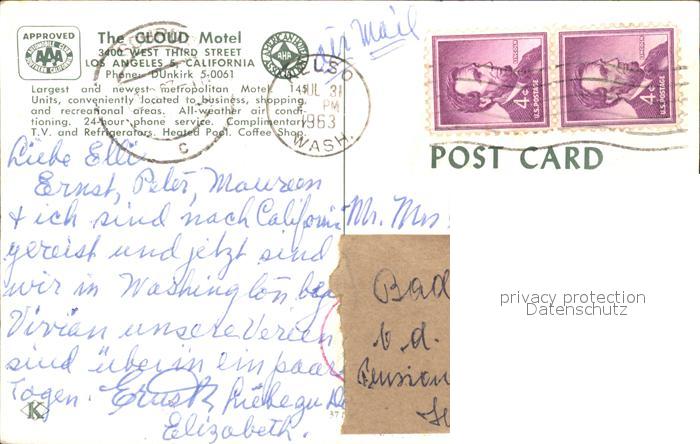 APPROVED
AAA
The CLOUD Motel
3400 WEST THIRD STREET
LOS ANGELES 5, CALIFORNIA
Phone: DUnkirk 5-0061
Largest and newest metropolitan Motel. 145
Units, conveniently located to business, shopping,
and recreational areas. All-weather air condi-
tioning. 24-hour phone service. Complimentary
T.V. and Refrigerators. Heated Pool. Coffee Shop.
AHA
Air Mail
JUL 31
PM
1963
WASH.
LINCOLN
4¢
U.S. POSTAGE
LINCOLN
4¢
U.S. POSTAGE
POST CARD
Liebe Elli
Ernst, Peter, Maureen
+ ich sind nach California
gereist und jetzt sind
wir in Washington
Vivian unsere Ferien
sind über in ein paar
Tagen. Ernst
Elizabeth.
K
Mr. Mrs
Bad
b. d.
Pension
privacy protection
Datenschutz